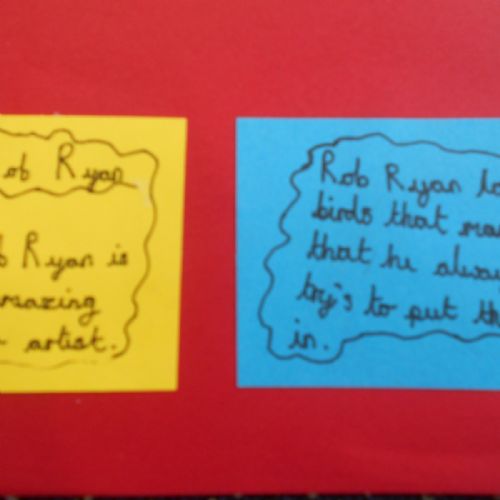 ob Ryan
b Ryan is
mazing
artist.
Rob Ryan lo
birds that mea
that he alway
try's to put th
in.